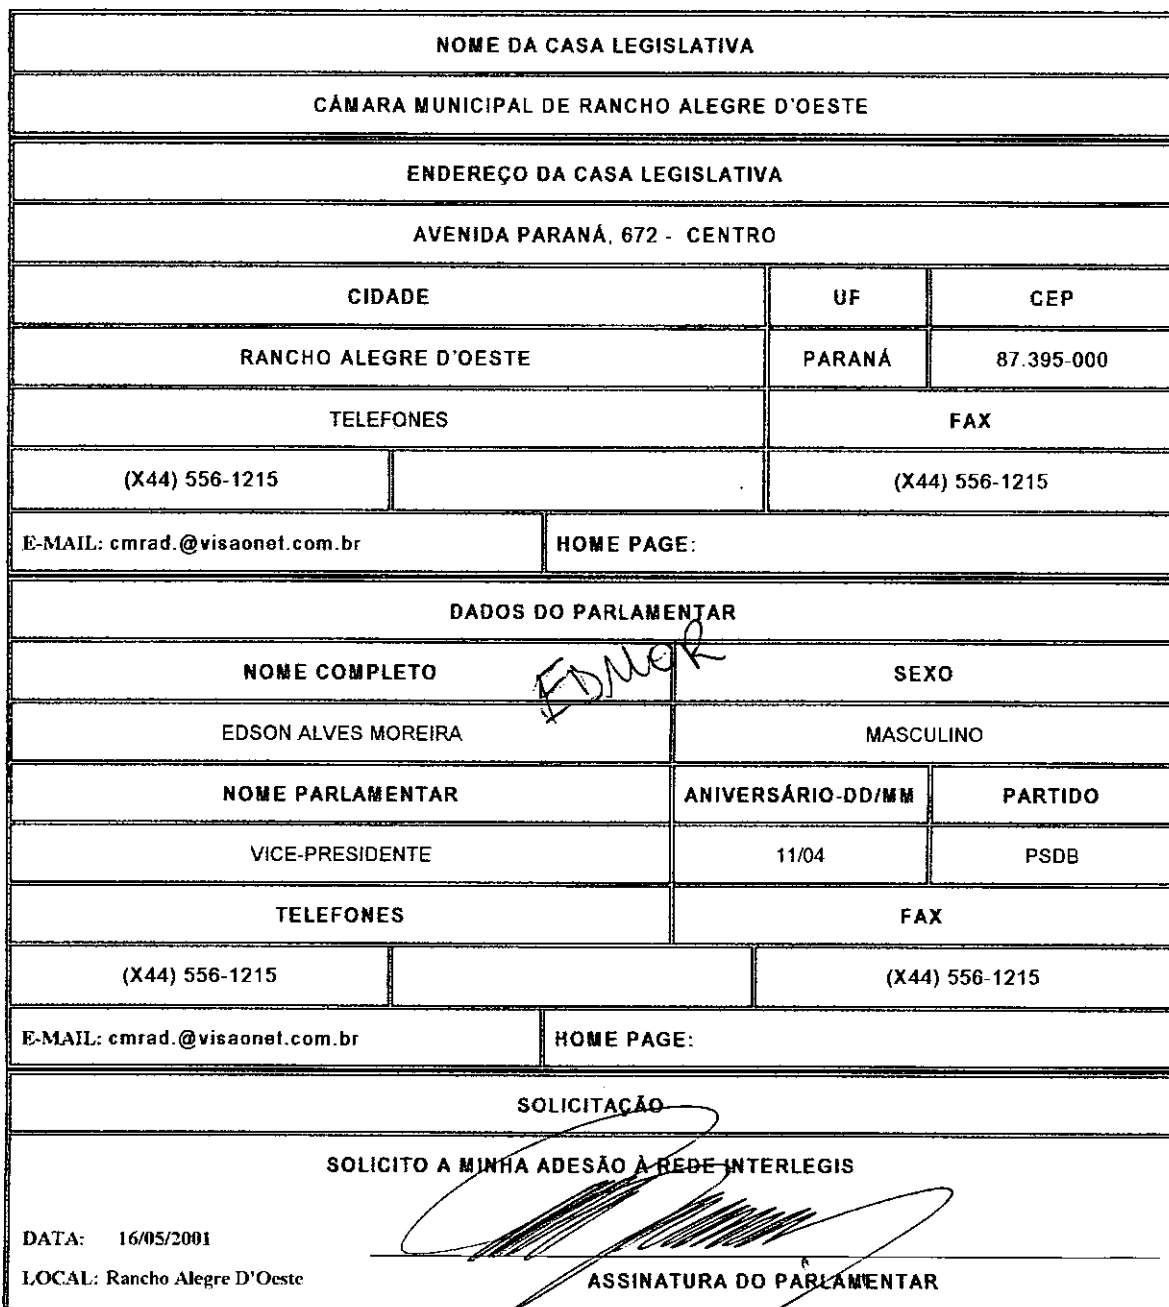 NOME DA CASA LEGISLATIVA
CÂMARA MUNICIPAL DE RANCHO ALEGRE D'OESTE
ENDEREÇO DA CASA LEGISLATIVA
AVENIDA PARANÁ, 672 - CENTRO
CIDADE UF CEP
RANCHO ALEGRE D'OESTE PARANÁ 87.395-000
TELEFONES FAX
(X44) 556-1215 (X44) 556-1215
E-MAIL: cmrad.@visaonet.com.br HOME PAGE:
DADOS DO PARLAMENTAR
EDMOR
NOME COMPLETO SEXO
EDSON ALVES MOREIRA MASCULINO
NOME PARLAMENTAR ANIVERSÁRIO-DD/MM PARTIDO
VICE-PRESIDENTE 11/04 PSDB
TELEFONES FAX
(X44) 556-1215 (X44) 556-1215
E-MAIL: cmrad.@visaonet.com.br HOME PAGE:
SOLICITAÇÃO
SOLICITO A MINHA ADESÃO À REDE INTERLEGIS
DATA: 16/05/2001
LOCAL: Rancho Alegre D'Oeste ASSINATURA DO PARLAMENTAR